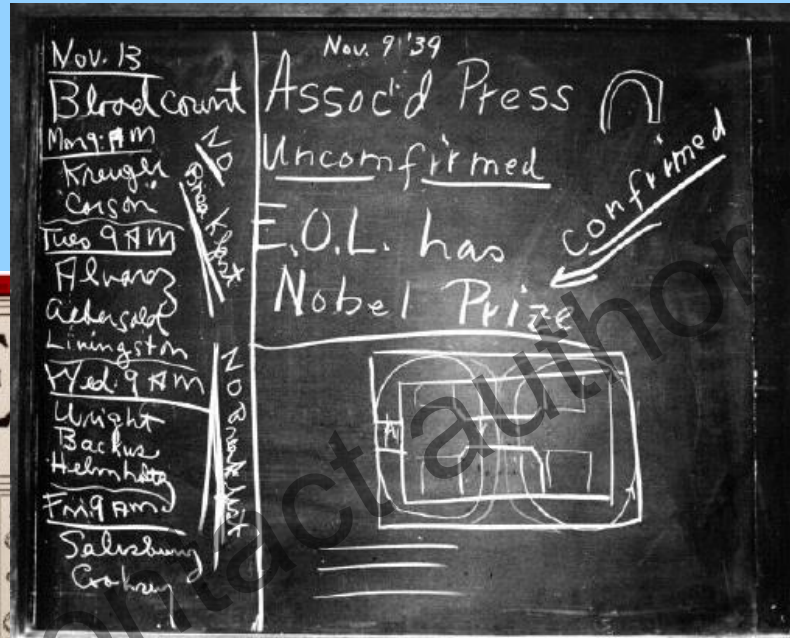 Nov. 13
Blood count
Mon 9 AM
Kreuger
Corson
Tues 9 AM
Alvarez
Aebersold
Livingston
Wed. 9 AM
Wright
Backus
Helmholtz
Fri 9 AM
Salisbury
Cooksey
NO
Breakfast
NO Breakfast
Nov. 9 '39
Assoc'd Press
Uncomfirmed
E.O.L. has
Nobel Prize
Confirmed
contact author